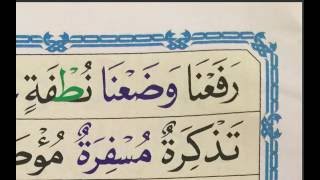 رَفَعْنَا وَضَعْنَا نُطْفَةٍ
تَذْكِرَةٌ مُسْفِرَةٌ